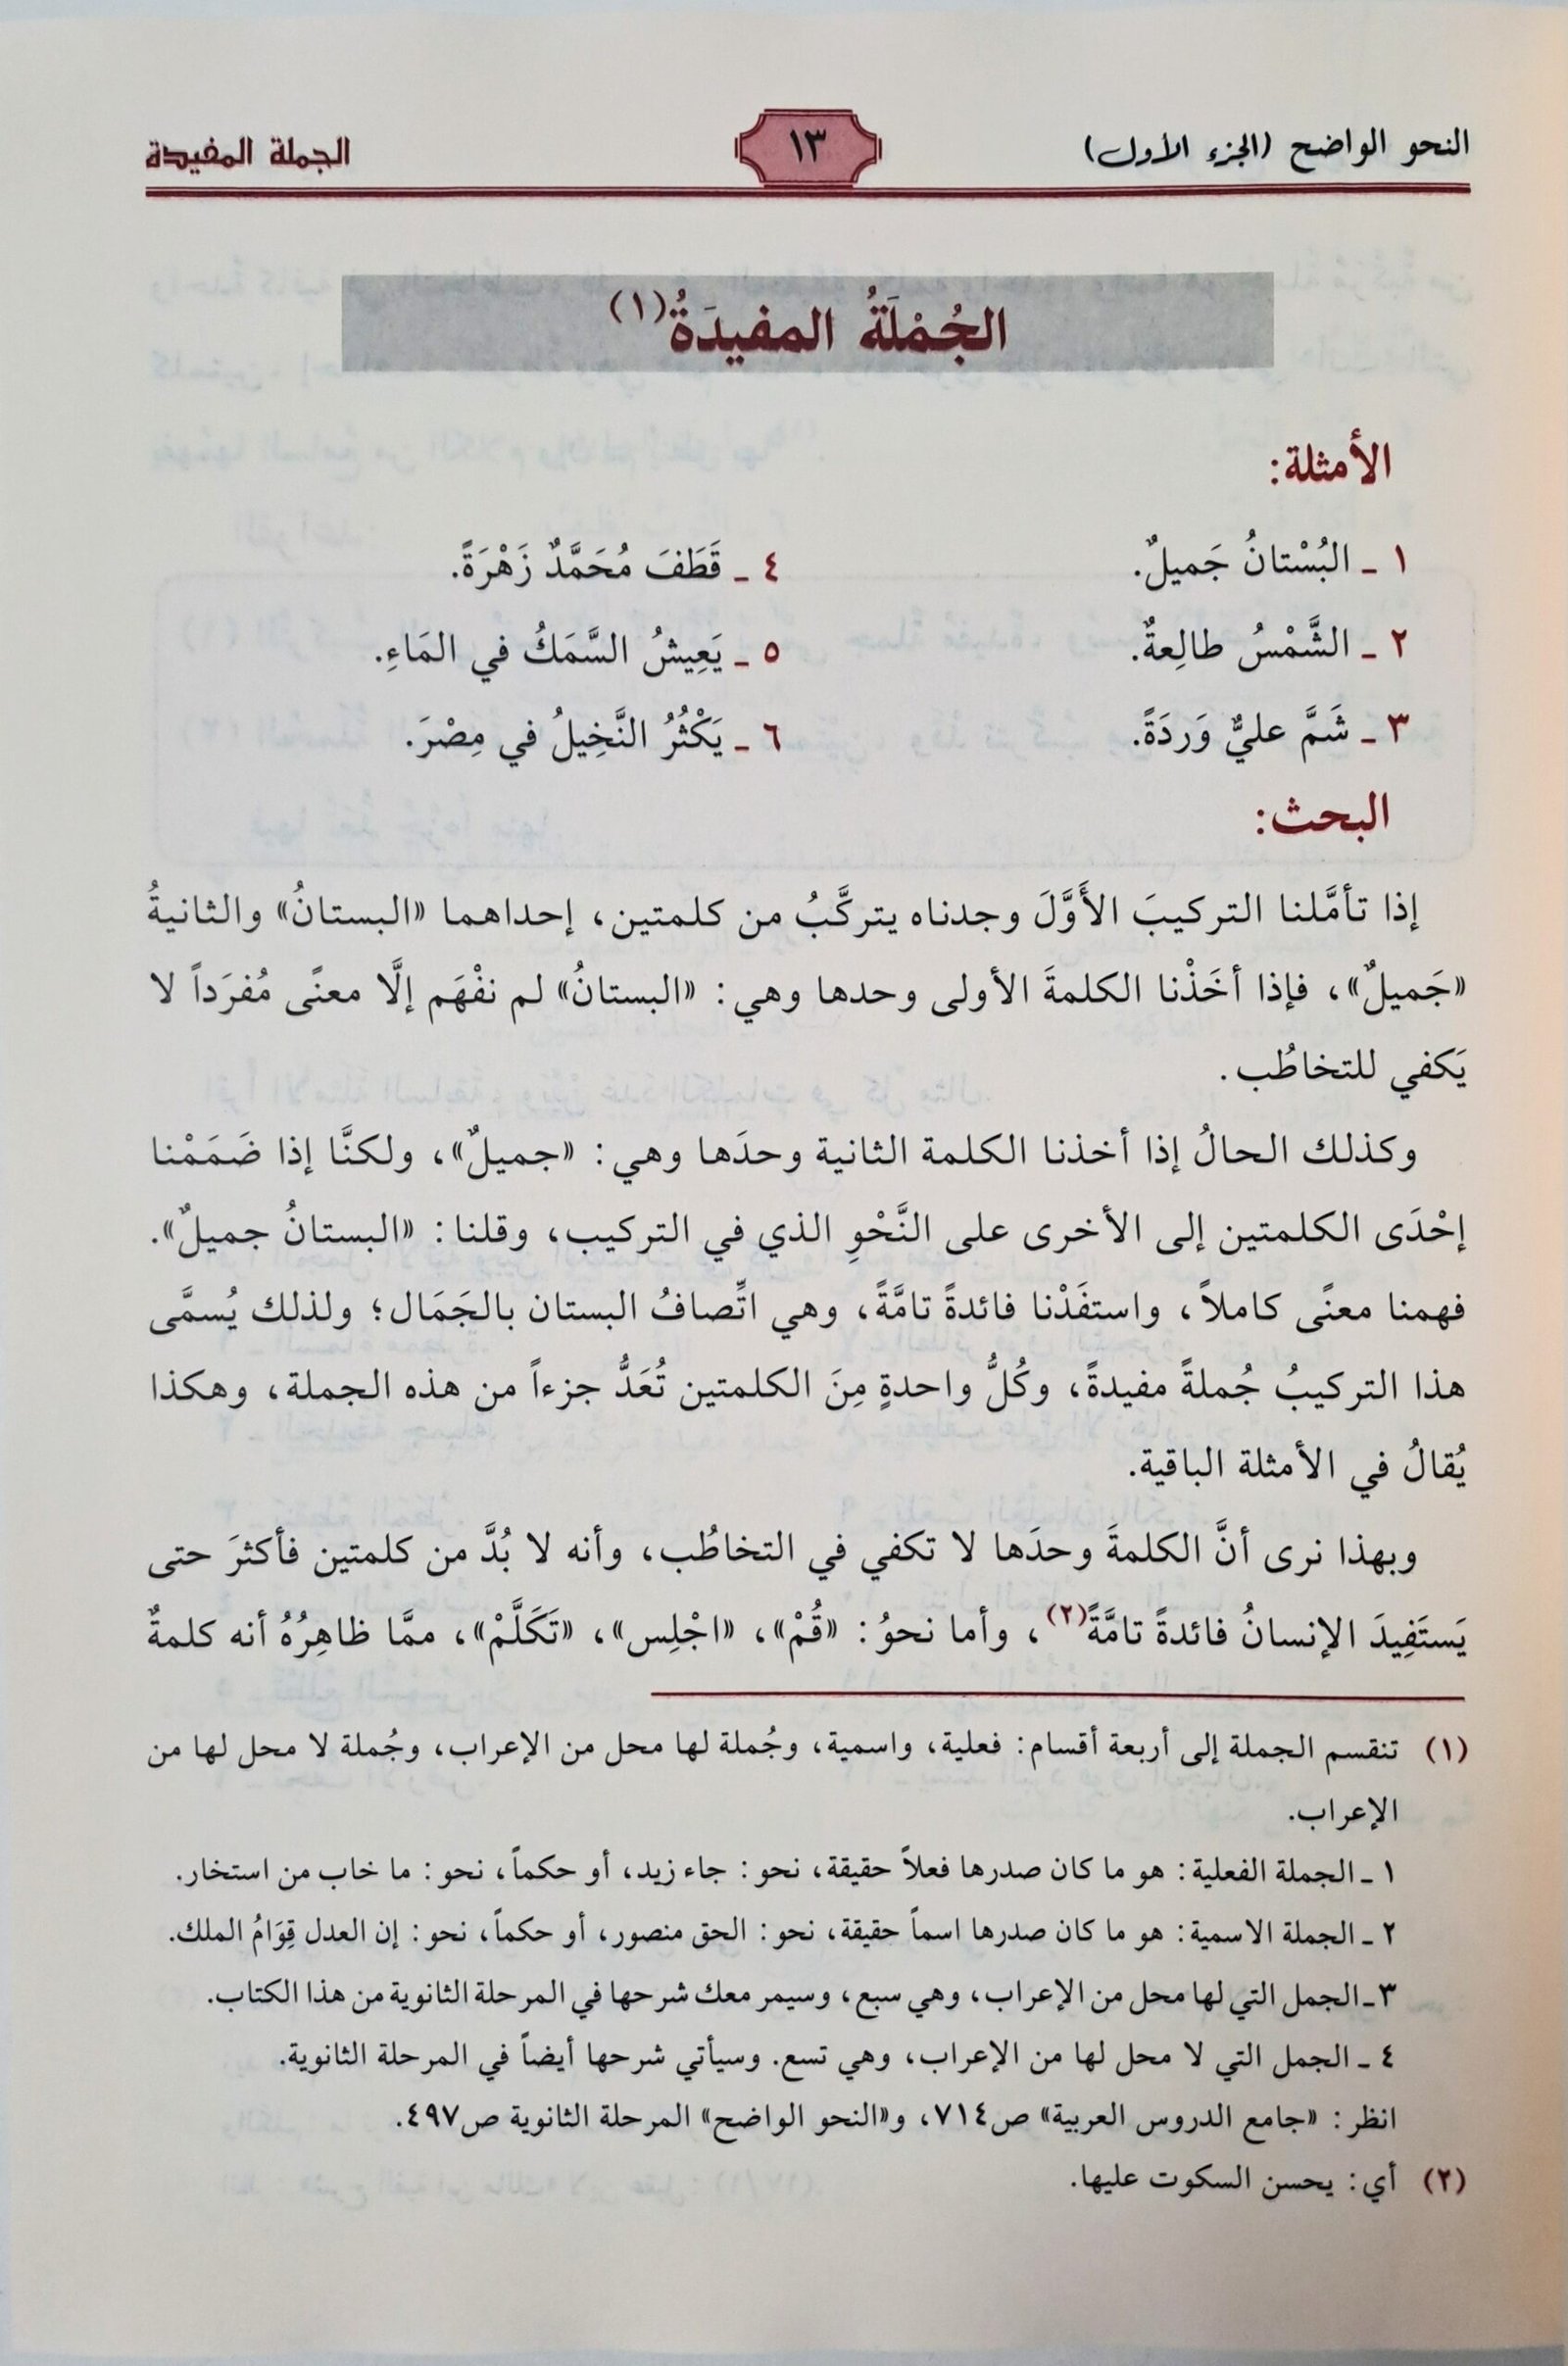 النحو الواضح (الجزء الأول)
١٣
الجملة المفيدة
الجُمْلَةُ المفيدَةُ(١)
الأمثلة:
١ ـ البُسْتانُ جَميلٌ.
٢ ـ الشَّمْسُ طالِعةٌ.
٣ ـ شَمَّ عليٌّ وَردَةً.
٤ ـ قَطَفَ مُحَمَّدٌ زَهْرَةً.
٥ ـ يَعِيشُ السَّمَكُ في المَاءِ.
٦ ـ يَكْثُرُ النَّخِيلُ في مِصْرَ.
البحث:
إذا تأمَّلنا التركيبَ الأَوَّلَ وجدناه يتركَّبُ من كلمتين، إحداهما «البستانُ» والثانيةُ
«جَميلٌ»، فإذا أخَذْنا الكلمةَ الأولى وحدها وهي: «البستانُ» لم نفْهَم إلَّا معنًى مُفرَداً لا
يَكفي للتخاطُب.
وكذلك الحالُ إذا أخذنا الكلمة الثانية وحدَها وهي: «جميلٌ»، ولكنَّا إذا ضَمَمْنا
إحْدَى الكلمتين إلى الأخرى على النَّحْوِ الذي في التركيب، وقلنا: «البستانُ جميلٌ».
فهمنا معنًى كاملاً، واستفَدْنا فائدةً تامَّةً، وهي اتِّصافُ البستان بالجَمَال؛ ولذلك يُسمَّى
هذا التركيبُ جُملةً مفيدةً، وكُلُّ واحدةٍ مِنَ الكلمتين تُعَدُّ جزءاً من هذه الجملة، وهكذا
يُقالُ في الأمثلة الباقية.
وبهذا نرى أنَّ الكلمةَ وحدَها لا تكفي في التخاطُب، وأنه لا بُدَّ من كلمتين فأكثرَ حتى
يَستَفِيدَ الإنسانُ فائدةً تامَّةً(٢)، وأما نحوُ: «قُمْ»، «اجْلِس»، «تَكَلَّمْ»، ممَّا ظاهِرُهُ أنه كلمةٌ
(١) تنقسم الجملة إلى أربعة أقسام: فعلية، واسمية، وجُملة لها محل من الإعراب، وجُملة لا محل لها من
الإعراب.
١ ـ الجملة الفعلية: هو ما كان صدرها فعلاً حقيقة، نحو: جاء زيد، أو حكماً، نحو: ما خاب من استخار.
٢ ـ الجملة الاسمية: هو ما كان صدرها اسماً حقيقة، نحو: الحق منصور، أو حكماً، نحو: إن العدل قِوَامُ الملك.
٣ ـ الجمل التي لها محل من الإعراب، وهي سبع، وسيمر معك شرحها في المرحلة الثانوية من هذا الكتاب.
٤ ـ الجمل التي لا محل لها من الإعراب، وهي تسع. وسيأتي شرحها أيضاً في المرحلة الثانوية.
انظر: «جامع الدروس العربية» ص٧١٤، و«النحو الواضح» المرحلة الثانوية ص٤٩٧.
(٢) أي: يحسن السكوت عليها.